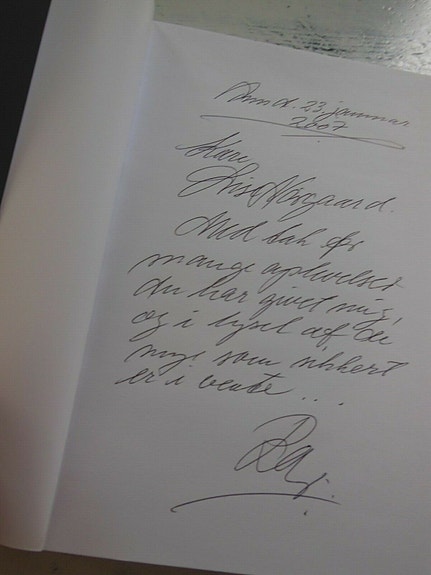 d. 23 januar
2007
Kære
Lise Nørgaard.
Med tak for
mange oplevelser
du har givet mig,
og i lyset af de
nye som sikkert
er i vente ...